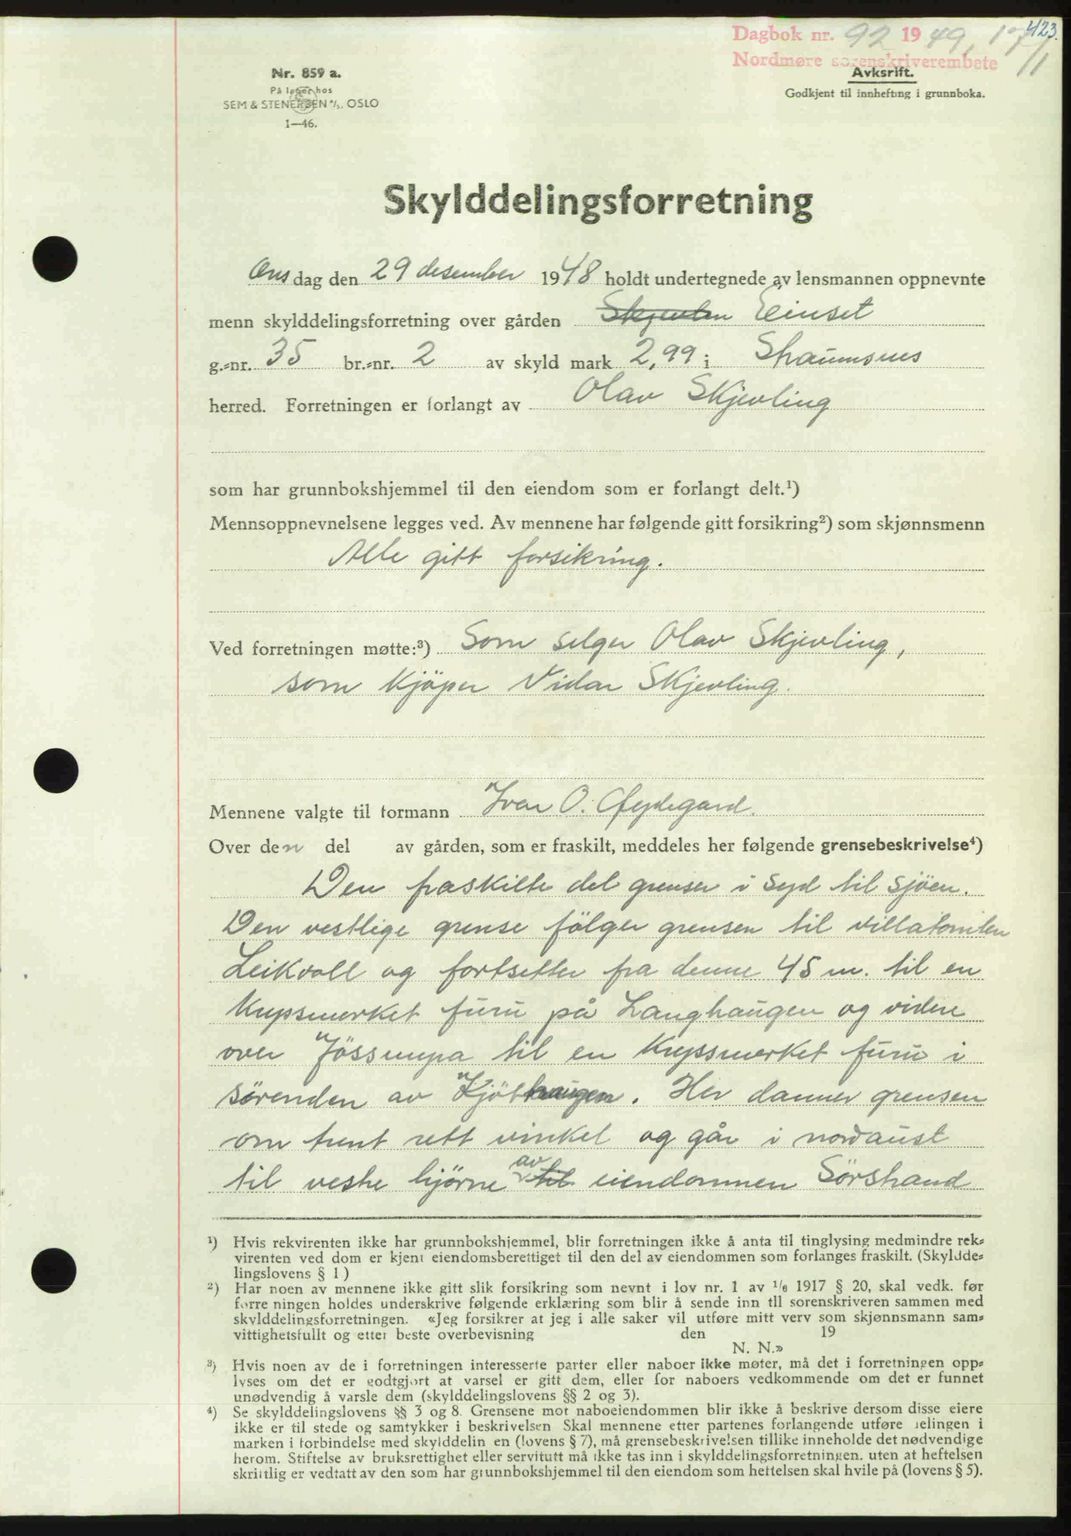 423.
Dagbok nr. 92 1949, 17/1
Nordmøre sorenskriverembete
Nr. 859 a.
På lager hos
SEM & STENERSEN A/S, OSLO
1—46.
Avksrift.
Godkjent til innhefting i grunnboka.
Skylddelingsforretning
Onsdag den 29 desember 1948 holdt undertegnede av lensmannen oppnevnte
menn skylddelingsforretning over gården Einset
g.-nr. 35 br.-nr. 2 av skyld mark 2,99 i
herred. Forretningen er forlangt av Olav Skjevling
som har grunnbokshjemmel til den eiendom som er forlangt delt.¹)
Mennsoppnevnelsene legges ved. Av mennene har følgende gitt forsikring²) som skjønnsmenn
Alle gitt forsikring.
Ved forretningen møtte:³) Som selger Olav Skjevling,
som kjöper Vidar Skjevling.
Mennene valgte til formann Ivar O. Øydegard.
Over den del av gården, som er fraskilt, meddeles her følgende grensebeskrivelse⁴)
Den fraskilte del grenser i syd til sjöen.
Den vestlige grense fölger grensen til villatomten
Leikvoll og fortsetter fra denne 45 m. til en
kryssmerket furu på Langhaugen og videre
over Jössmyra til en kryssmerket furu i
sörenden av Kjöthaugen. Her danner grensen
om trent rett vinkel og går i nordaust
til vestre hjörne av til eiendommen Sörstrand
¹) Hvis rekvirenten ikke har grunnbokshjemmel, blir forretningen ikke å anta til tinglysing medmindre rek-
virenten ved dom er kjent eiendomsberettiget til den del av eiendommen som forlanges fraskilt. (Skyldde-
lingslovens § 1)
²) Har noen av mennene ikke gitt slik forsikring som nevnt i lov nr. 1 av 1/6 1917 § 20, skal vedk. før
forretningen holdes underskrive følgende erklæring som blir å sende inn til sorenskriveren sammen med
skylddelingsforretningen. «Jeg forsikrer at jeg i alle saker vil utføre mitt verv som skjønnsmann sam-
vittighetsfullt og etter beste overbevisning den 19
N. N.»
³) Hvis noen av de i forretningen interesserte parter eller naboer ikke møter, må det i forretningen opp-
lyses om det er godtgjort at varsel er gitt dem, eller for naboers vedkommende om det er funnet
unødvendig å varsle dem (skylddelingslovens §§ 2 og 3).
⁴) Se skylddelingslovens §§ 3 og 8. Grensene mot naboeiendommen blir ikke å beskrive dersom disse eiere
ikke er til stede og samtykker i beskrivelsen Skal mennene etter partenes forlangende utføre delingen i
marken i forbindelse med skylddelingen (lovens § 7), må grensebeskrivelsen tillike inneholde det nødvendige
herom. Stiftelse av bruksrettighet eller servitutt må ikke tas inn i skylddelingsforretningen, uten at heftelsen
skriftlig er vedtatt av den som har grunnbokshjemmel til den eiendom som heftelsen skal hvile på (lovens § 5).